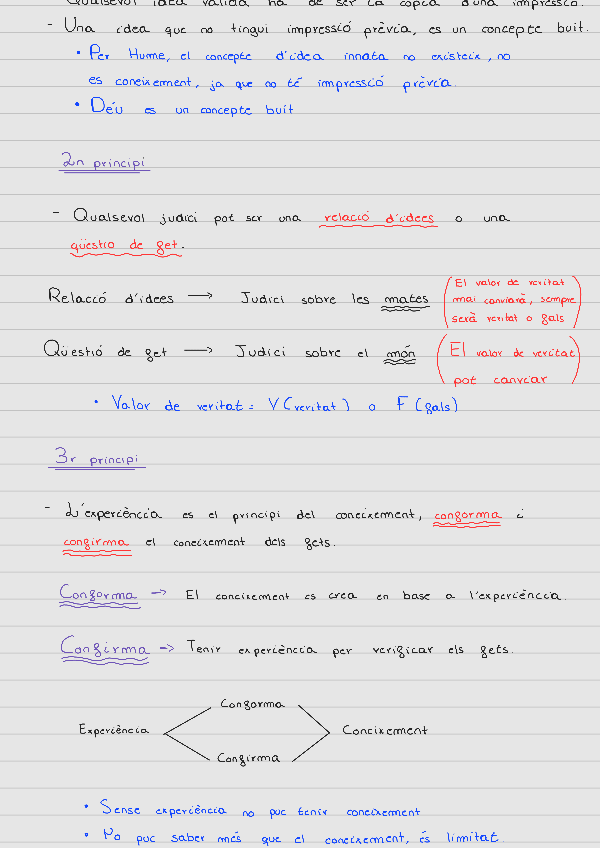 Qualsevol idea vàlida ha de ser la còpia d'una impressió.
- Una idea que no tingui impressió prèvia, es un concepte buit.
• Per Hume, el concepte d'idea innata no existeix, no
es coneixement, ja que no té impressió prèvia.
• Déu es un concepte buit
2n principi
- Qualsevol judici pot ser una relació d'idees o una
qüestio de fet.
Relació d'idees → Judici sobre les mates (El valor de veritat
mai canviarà, sempre
serà veritat o fals)
Qüestió de fet → Judici sobre el món (El valor de veritat
pot canviar)
• Valor de veritat = V (veritat) o F (fals)
3r principi
- L'experiència es el principi del coneixement, conforma i
confirma el coneixement dels fets.
Conforma → El coneixement es crea en base a l'experiència.
Confirma → Tenir experiència per verificar els fets.
Conforma
Experiència Coneixement
Confirma
• Sense experiència no puc tenir coneixement
• No puc saber més que el coneixement, és limitat.